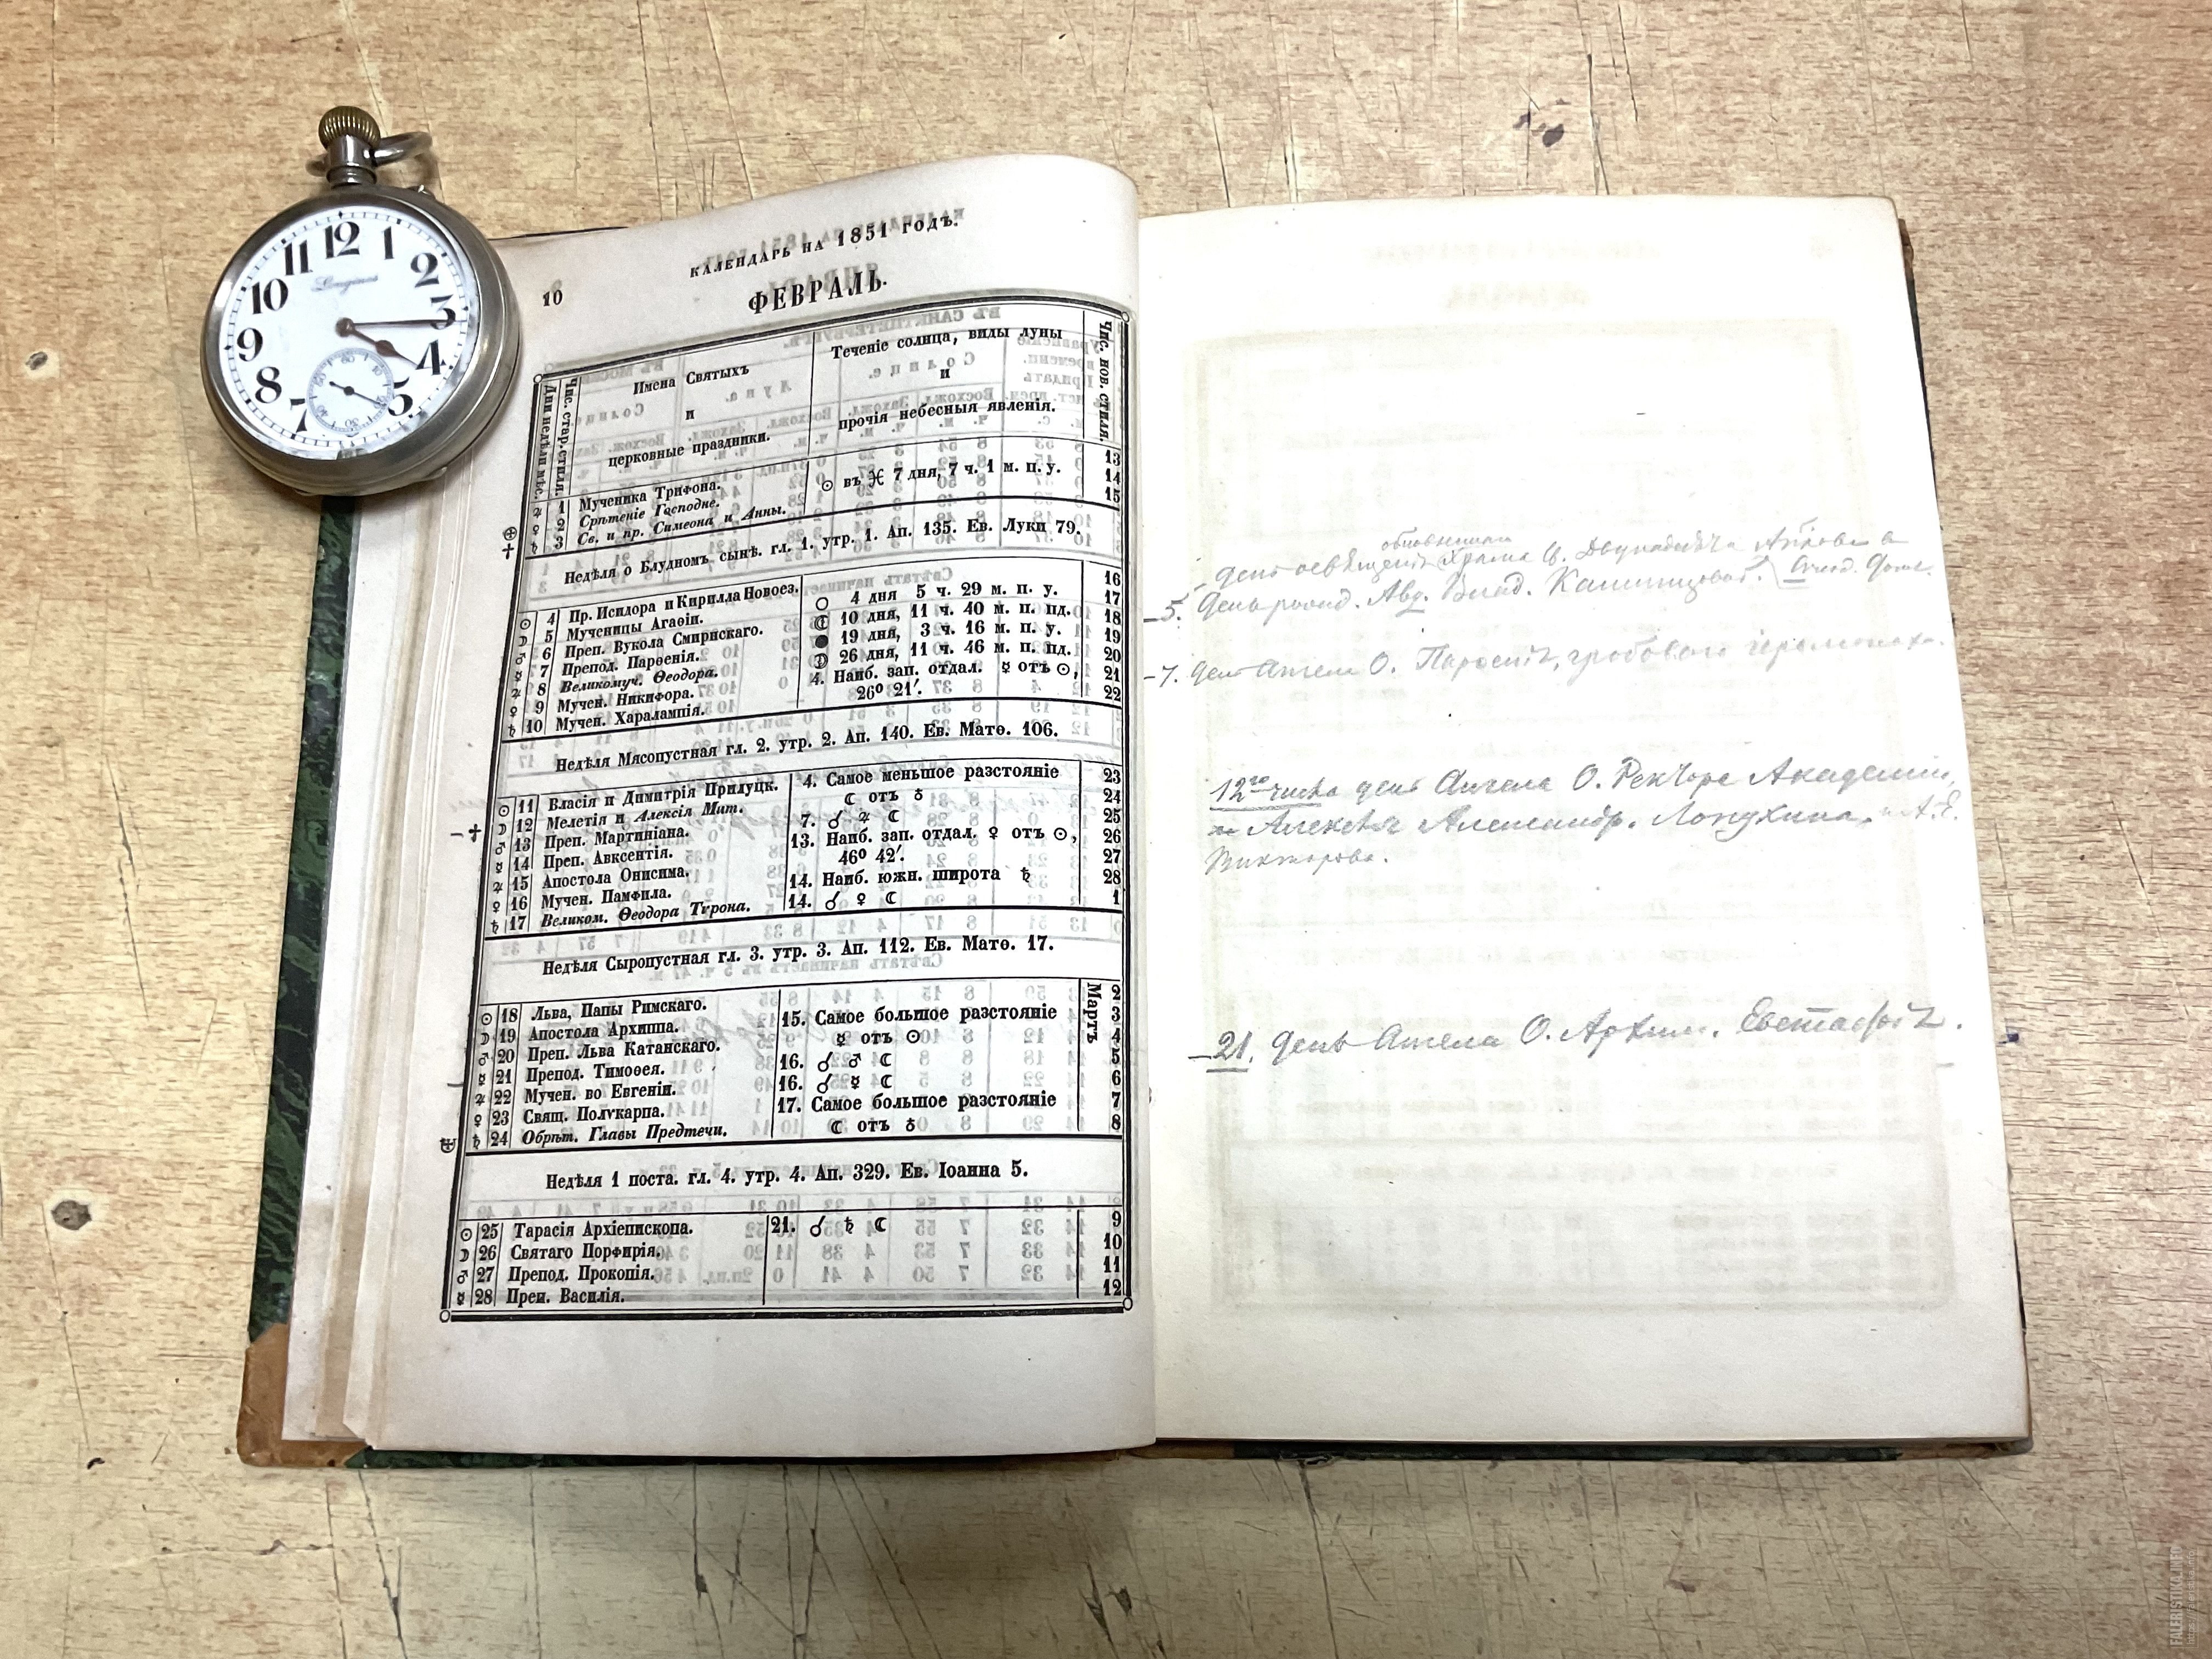 12 1 2 3 4 5 7 8 9 10 11
Longines
КАЛЕНДАРЬ НА 1851 ГОДЪ.
10
ФЕВРАЛЬ.
Дни недѣли мѣс.
Чис. стар. стиля.
Имена Святыхъ
и
церковные праздники.
Теченіе солнца, виды луны
и
прочія небесныя явленія.
Чис. нов. стиля.
♃ 1 Мученика Трифона. ☉ въ ♓ 7 дня, 7 ч. 1 м. п. у. 13
♀ 2 Срѣтеніе Господне. 14
♄ 3 Св. и пр. Симеона и Анны. 15
Недѣля о Блудномъ сынѣ. гл. 1. утр. 1. Ап. 135. Ев. Луки 79.
☉ 4 Пр. Исидора и Кирилла Новоез. 4 дня 5 ч. 29 м. п. у. 16
☽ 5 Мученицы Агаѳіи. 10 дня, 11 ч. 40 м. п. пд. 17
♂ 6 Преп. Вукола Смирнскаго. 19 дня, 3 ч. 16 м. п. у. 18
☿ 7 Препод. Парѳенія. 26 дня, 11 ч. 46 м. п. пд. 19
♃ 8 Великомуч. Ѳеодора. 4. Наиб. зап. отдал. ☿ отъ ☉, 20
♀ 9 Мучен. Никифора. 26º 21′. 21
♄ 10 Мучен. Харалампія. 22
Недѣля Мясопустная гл. 2. утр. 2. Ап. 140. Ев. Матѳ. 106.
☉ 11 Власія и Димитрія Прилуцк. 4. Самое меньшое разстояніе 23
☽ 12 Мелетія и Алексія Мит. ☾ отъ ♁ 24
♂ 13 Преп. Мартиніана. 7. ☌ ♃ ☾ 25
☿ 14 Преп. Авксентія. 13. Наиб. зап. отдал. ♀ отъ ☉, 26
♃ 15 Апостола Онисима. 46º 42′. 27
♀ 16 Мучен. Памфила. 14. Наиб. южн. широта ♄ 28
♄ 17 Великом. Ѳеодора Тѵрона. 14. ☌ ♀ ☾ 1
Недѣля Сыропустная гл. 3. утр. 3. Ап. 112. Ев. Матѳ. 17.
Мартъ
☉ 18 Льва, Папы Римскаго. 15. Самое большое разстояніе 2
☽ 19 Апостола Архиппа. ☿ отъ ☉ 3
♂ 20 Преп. Льва Катанскаго. 16. ☌ ♂ ☾ 4
☿ 21 Препод. Тимоѳея. 16. ☌ ☿ ☾ 5
♃ 22 Мучен. во Евгеніи. 17. Самое большое разстояніе 6
♀ 23 Свящ. Полѵкарпа. ☾ отъ ♁ 7
♄ 24 Обрѣт. Главы Предтечи. 8
Недѣля 1 поста. гл. 4. утр. 4. Ап. 329. Ев. Іоанна 5.
☉ 25 Тарасія Архіепископа. 21. ☌ ♄ ☾ 9
☽ 26 Святаго Порфирія. 10
♂ 27 Препод. Прокопія. 11
☿ 28 Преп. Василія. 12
день храма
5. день рожд. Влад.
7. день Ангела О. Парѳенія, гробоваго іеромонаха.
12го числа день Ангела О. Ректора Академіи,
Алексѣя Александр. Лопухина, и А. Е.
Викторова.
21. день Ангела О. Архим. Евстафія.
FALERISTIKA.INFO